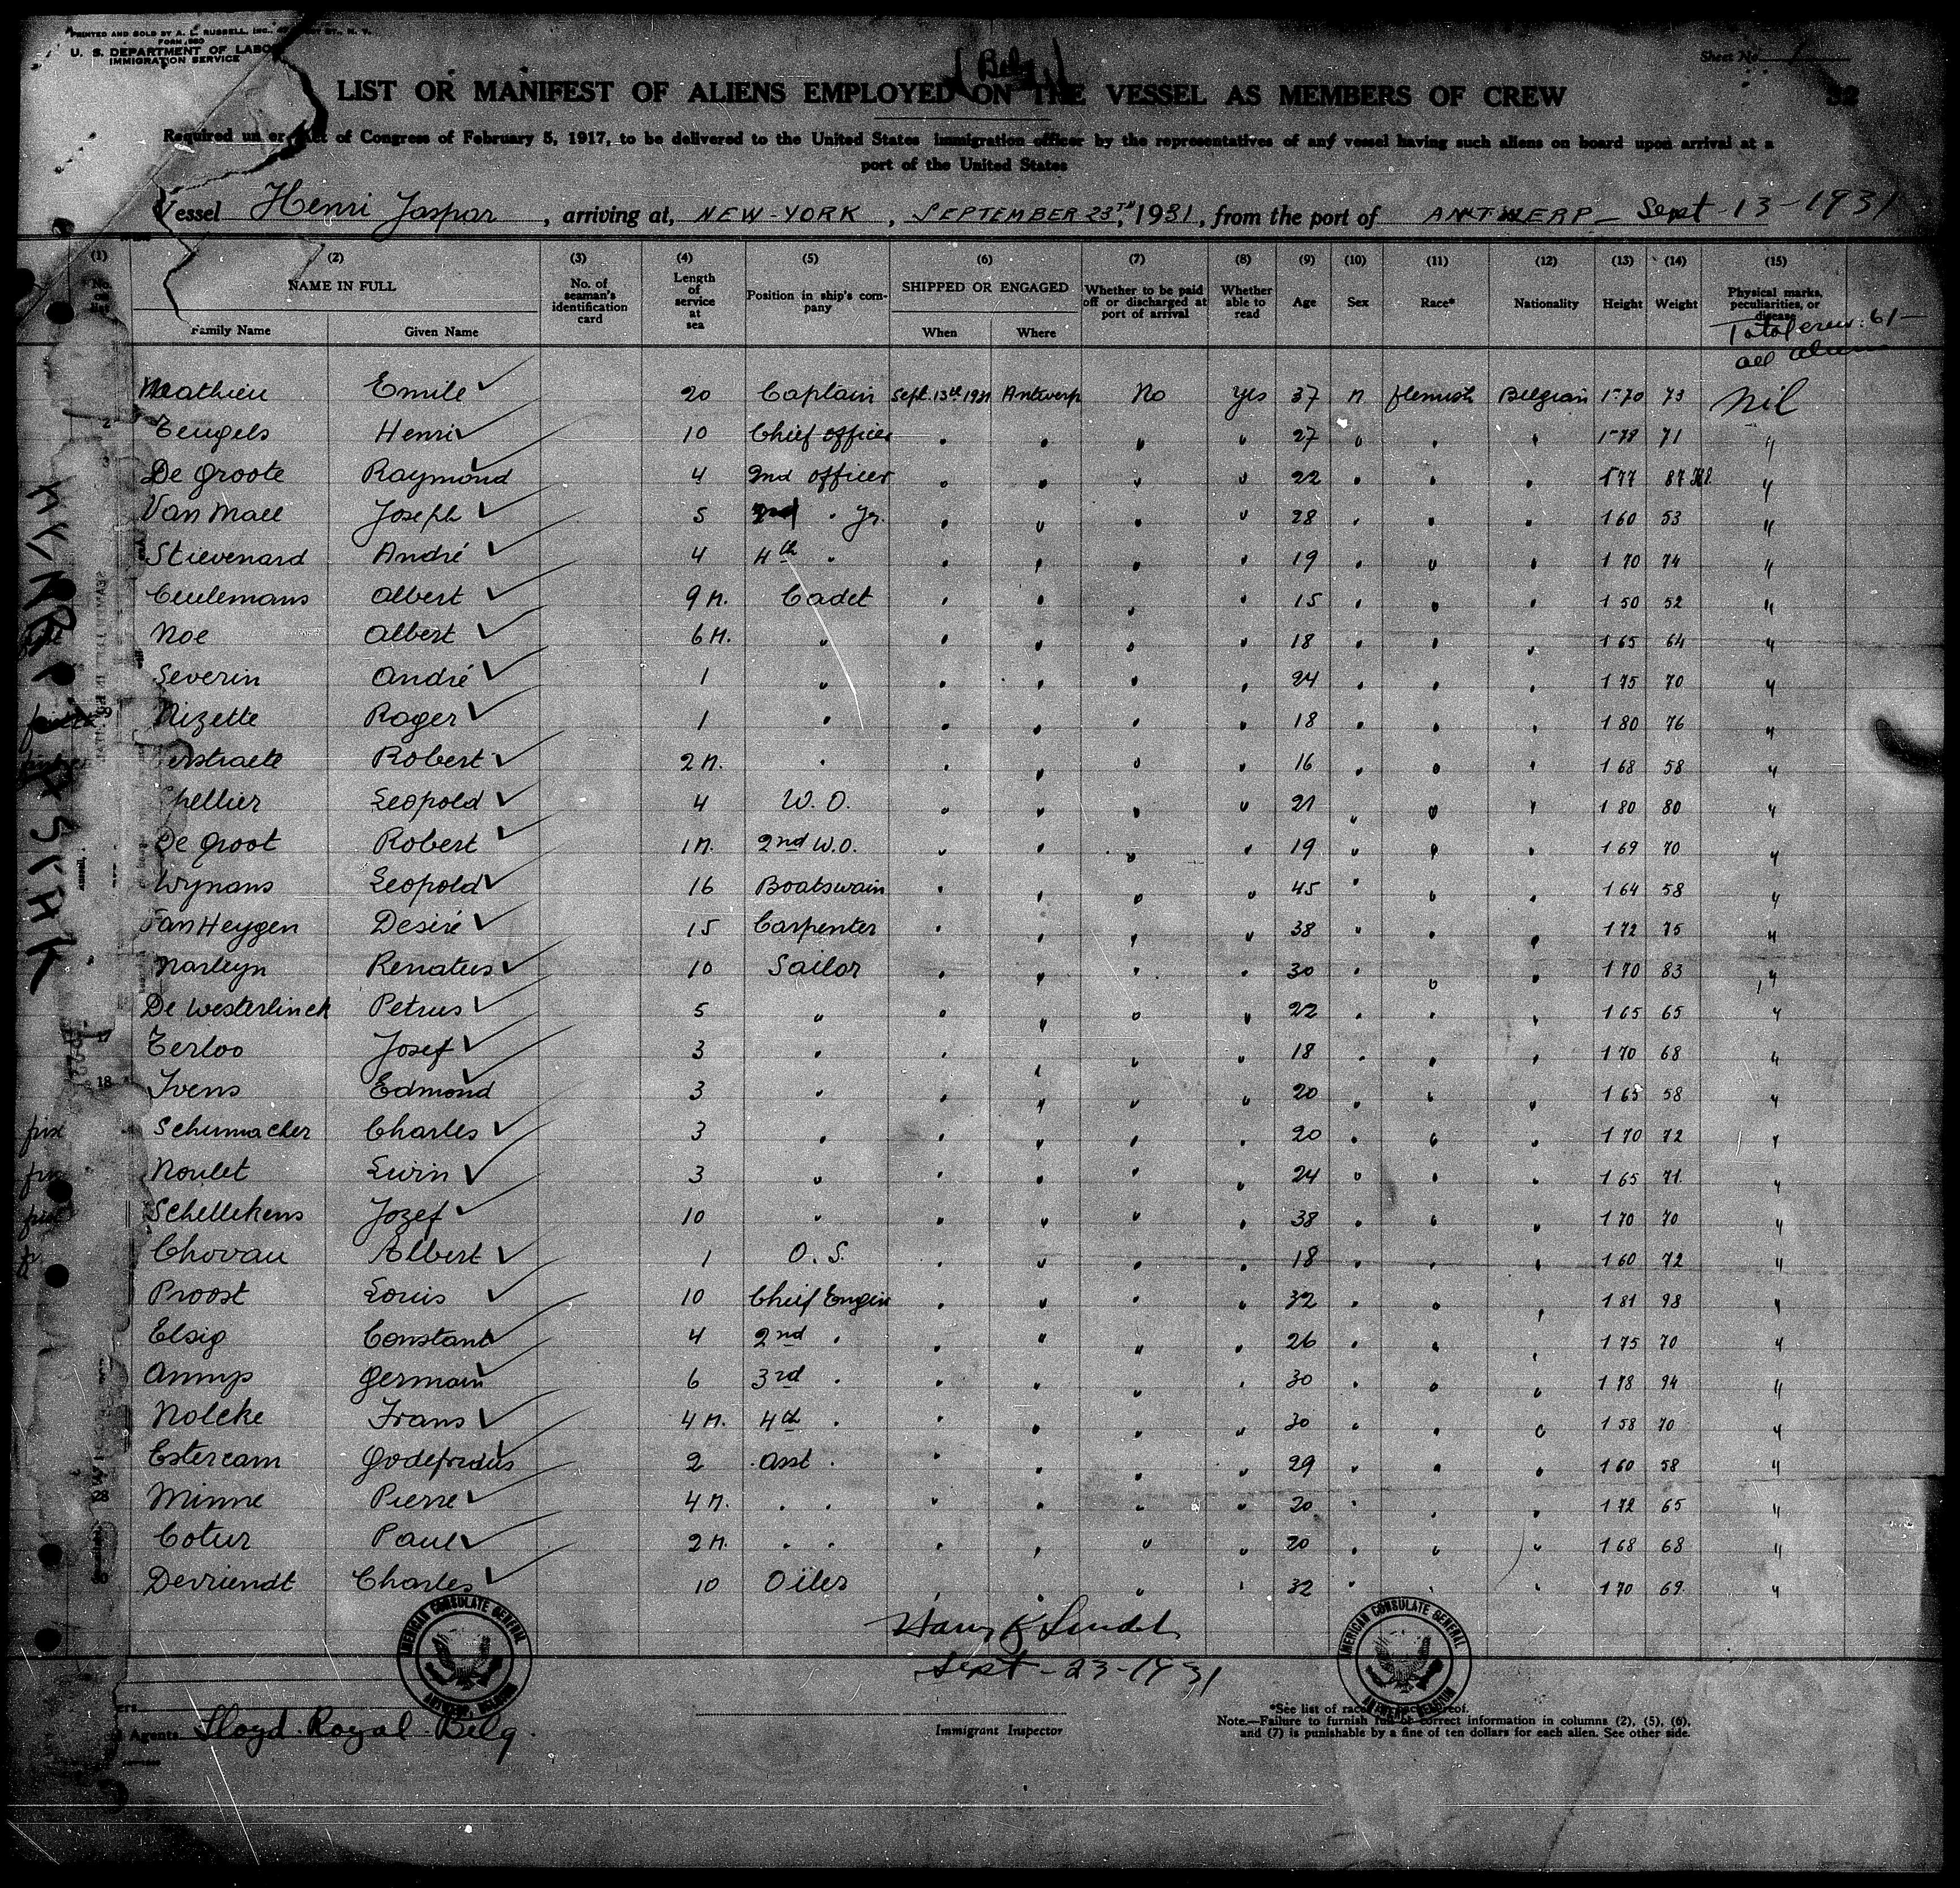 PRINTED AND SOLD BY A. L. RUSSELL, INC.,
FORM 680
U. S. DEPARTMENT OF LABO
IMMIGRATION SERVICE
Sheet No. 1
(Belg.)
LIST OR MANIFEST OF ALIENS EMPLOYED ON THE VESSEL AS MEMBERS OF CREW
32
Required un er Act of Congress of February 5, 1917, to be delivered to the United States immigration officer by the representatives of any vessel having such aliens on board upon arrival at a
port of the United States
Vessel Henri Jaspar, arriving at, NEW-YORK, SEPTEMBER 23TH, 1931, from the port of ANTWERP - Sept-13-1931
(1) (2) (3) (4) (5) (6) (7) (8) (9) (10) (11) (12) (13) (14) (15)
No. on list NAME IN FULL Family Name Given Name No. of seaman's identification card Length of service at sea Position in ship's company SHIPPED OR ENGAGED When Where Whether to be paid off or discharged at port of arrival Whether able to read Age Sex Race* Nationality Height Weight Physical marks, peculiarities, or disease
Total crew: 61-
all aliens
Mathieu Emile 20 Captain Sept. 13th 1931 Antwerp No Yes 37 M flemish Belgian 1-70 73 Nil
2 Teugels Henri 10 Chief officer " " " " 27 " " " 1-78 71 "
3 De Groote Raymond 4 2nd officer " " " " 22 " " " 177 87 "
Van Mael Joseph 5 " Jr. " " " " 28 " " " 160 53 "
Stievenard André 4 4th " " " " " 19 " " " 1 70 74 "
Ceulemans Albert 9 M. Cadet " " " " 15 " " " 1 50 52 "
Noe Albert 6 M. " " " " " 18 " " " 1 65 64 "
Severin André 1 " " " " " 24 " " " 1 75 70 "
9 Nizette Roger 1 " " " " " 18 " " " 1 80 76 "
erstraete Robert 2 M. " " " " " 16 " " " 1 68 58 "
hellier Leopold 4 W. O. " " " " 21 " " " 1 80 80 "
De Groot Robert 1 M. 2nd W.O. " " " " 19 " " " 1 69 70 "
Wynans Leopold 16 Boatswain " " " " 45 " " " 1 64 58 "
Van Heygen Desiré 15 Carpenter " " " " 38 " " " 1 72 75 "
Marleyn Renatus 10 Sailor " " " " 30 " " " 1 70 83 "
De Westerlinck Petrus 5 " " " " " 22 " " " 1 65 65 "
17 Terloo Josef 3 " " " " " 18 " " " 1 70 68 "
18 Ivens Edmond 3 " " " " " 20 " " " 1 65 58 "
Schumacher Charles 3 " " " " " 20 " " " 1 70 72 "
Noulet Livin 3 " " " " " 24 " " " 1 65 71 "
Schellekens Jozef 10 " " " " " 38 " " " 1 70 70 "
Chovau Albert 1 O. S. " " " " 18 " " " 1 60 72 "
Proost Louis 10 Chief Engin " " " " 32 " " " 1 81 98 "
Elsig Constant 4 2nd " " " " " 26 " " " 1 75 70 "
Annys Germain 6 3rd " " " " " 30 " " " 1 78 94 "
Nolcke Frans 4 M. 4th " " " " " 30 " " " 1 58 70 "
Estercam Godefridus 2 Asst " " " " " 29 " " " 1 60 58 "
28 Minne Pierre 4 M. " " " " " " 20 " " " 1 72 65 "
Cotur Paul 2 M. " " " " " " 20 " " " 1 68 68 "
30 Devriendt Charles 10 Oiler " " " " 32 " " " 1 70 69 "
AMERICAN CONSULATE GENERAL
ANTWERP, BELGIUM
AMERICAN CONSULATE GENERAL
ANTWERP, BELGIUM
Sept-23-1931
Immigrant Inspector
Agents Lloyd Royal Belg.
*See list of races on back hereof.
Note.—Failure to furnish full or correct information in columns (2), (5), (6),
and (7) is punishable by a fine of ten dollars for each alien. See other side.